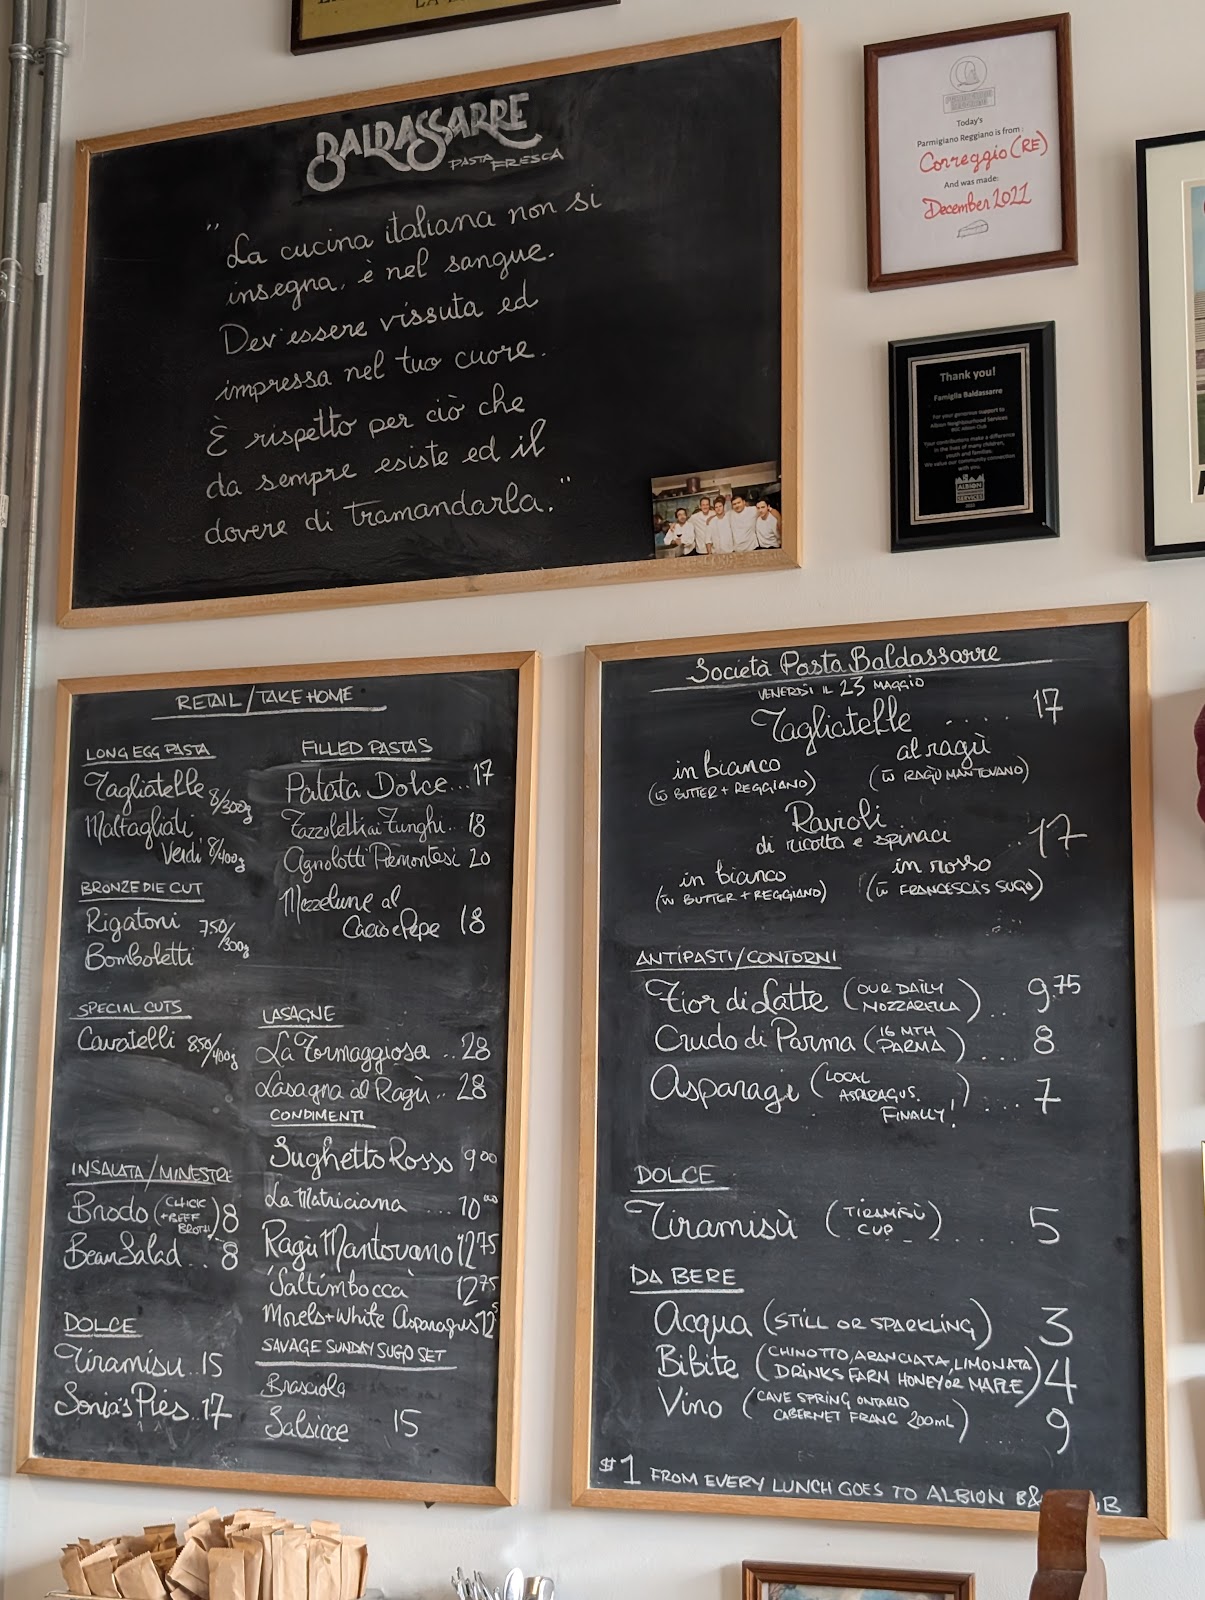 BALDASSARRE
PASTA FRESCA
"La cucina italiana non si
insegna, è nel sangue.
Dev'essere vissuta ed
impressa nel tuo cuore.
È rispetto per ciò che
da sempre esiste ed il
dovere di tramandarla."
Today's
Parmigiano Reggiano is from:
Correggio (RE)
And was made:
December 2021
Thank you!
Famiglia Baldassarre
For your generous support to
Albion Neighbourhood Services
BGC Albion Club
Your contributions make a difference
in the lives of many children,
youth and families.
We value our community connection
with you.
ALBION
SERVICES
RETAIL/TAKE HOME
LONG EGG PASTA
Tagliatelle 8/300g
Maltagliati
Verdi 8/400g
BRONZE DIE CUT
Rigatoni 750/300g
Bomboletti
SPECIAL CUTS
Cavatelli 8.50/400g
INSALATA/MINESTRE
Brodo (CHICK + BEEF BROTH) 8
Bean Salad .. 8
DOLCE
Tiramisu .. 15
Sonia's Pies .. 17
FILLED PASTAS
Patata Dolce ... 17
Fazzoletti ai Funghi .. 18
Agnolotti Piemontesi 20
Mezzelune al
Cacio e Pepe 18
LASAGNE
La Formaggiosa .. 28
Lasagna al Ragù .. 28
CONDIMENTI
Sughetto Rosso 9 00
La Matriciana ... 10 00
Ragù Mantovano 12 75
'Saltimbocca' 12 75
Morels + White Asparagus 12 5
SAVAGE SUNDAY SUGO SET
Brasciola
Salsicce 15
Società Pasta Baldassarre
VENERDÌ IL 23 MAGGIO
Tagliatelle .... 17
in bianco al ragù
(w BUTTER + REGGIANO) (w RAGÙ MANTOVANO)
Ravioli
di ricotta e spinaci .. 17
in bianco in rosso
(w BUTTER + REGGIANO) (w FRANCESCA'S SUGO)
ANTIPASTI/CONTORNI
Fior di Latte (OUR DAILY MOZZARELLA) .. 9.75
Crudo di Parma (16 MTH PARMA) ... 8
Asparagi (LOCAL ASPARAGUS. FINALLY!) ... 7
DOLCE
Tiramisù (TIRAMISÙ CUP) .... 5
DA BERE
Acqua (STILL OR SPARKLING) 3
Bibite (CHINOTTO, ARANCIATA, LIMONATA
DRINKS FARM HONEY OR MAPLE) 4
Vino (CAVE SPRING ONTARIO
CABERNET FRANC 200mL) .. 9
$1 FROM EVERY LUNCH GOES TO ALBION B&